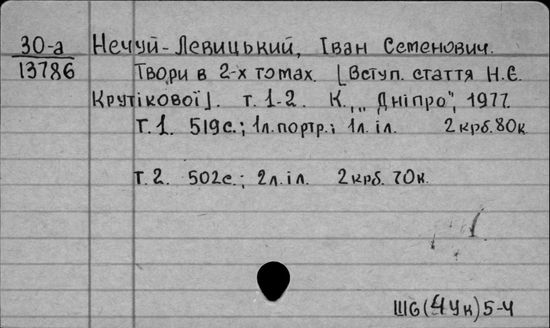 30-а Нечуй-Левицький, Іван Семенович.
13786 Твори в 2-х томах. [Вступ. стаття Н.Є.
Крутікової]. т. 1-2. К., „Дніпро", 1977.
т. 1. 519с.; 1л.портр.; 1л.іл. 2крб.80к
т. 2. 502с.; 2л.іл. 2крб. 70к.
Ш6(4Ук)5-4